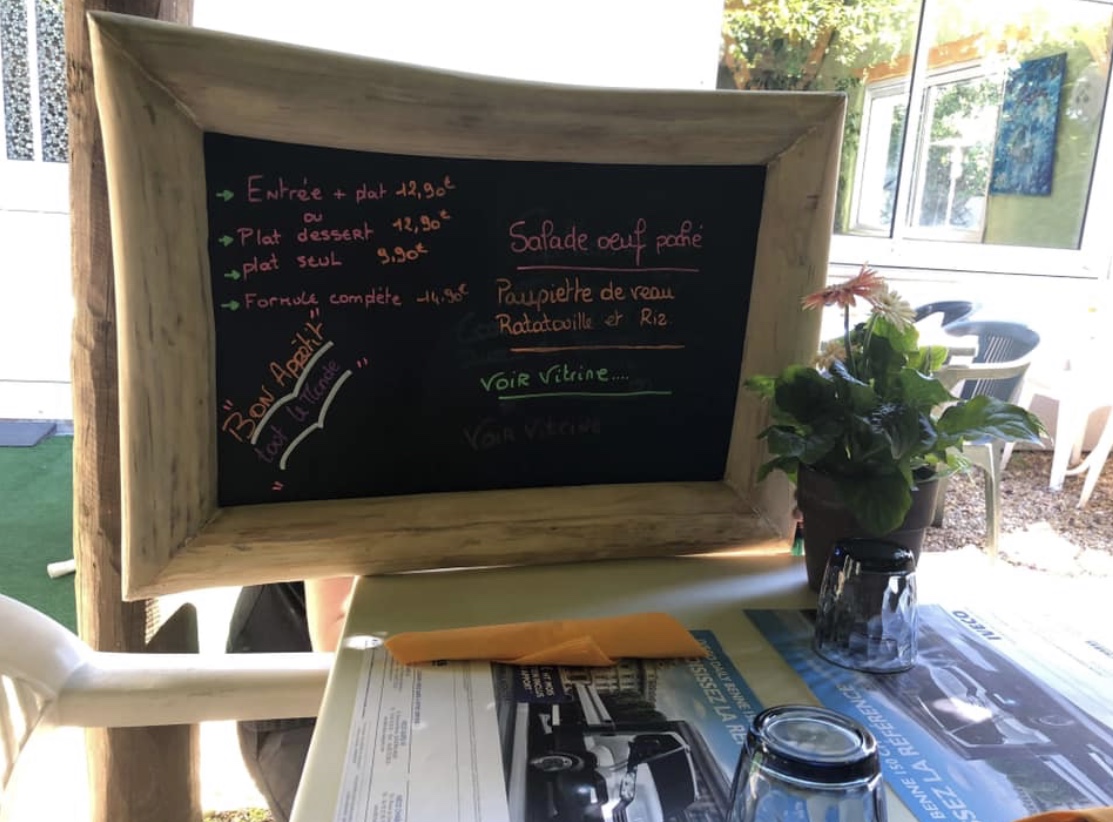 → Entrée + plat 12,90€
ou
→ Plat dessert 12,90€
→ plat seul 9,90€
→ Formule complète -14,90€
"BON Appétit"
tout le Monde "
Salade oeuf poché
Paupiette de veau
Ratatouille et Riz
VOIR Vitrine....
Voir Vitrine
IVECO
BENNE 150 C
SEZ LA RÉFÉRENCE
DAILY BENNE
ISISSEZ LA RÉ